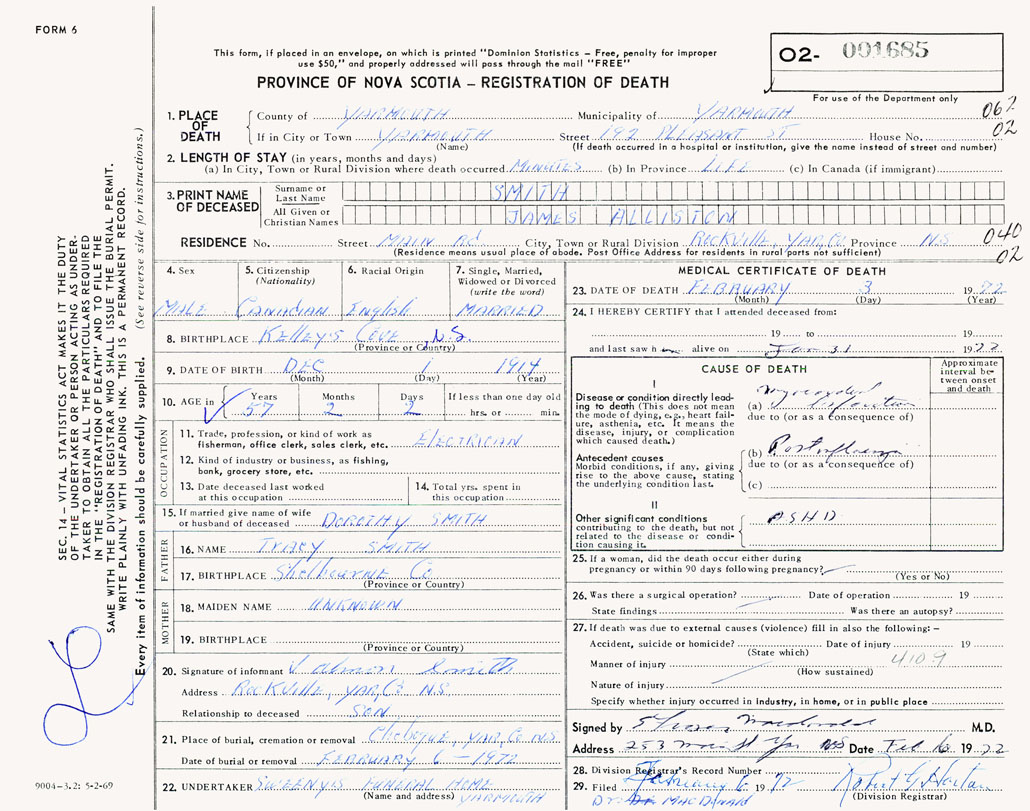 FORM 6
This form, if placed in an envelope, on which is printed "Dominion Statistics – Free, penalty for improper
use $50," and properly addressed will pass through the mail "FREE"
PROVINCE OF NOVA SCOTIA – REGISTRATION OF DEATH
02- 001685
For use of the Department only
062
02
1. PLACE OF DEATH
County of YARMOUTH Municipality of YARMOUTH
If in City or Town YARMOUTH Street 192 PLEASANT ST House No.
(Name) (If death occurred in a hospital or institution, give the name instead of street and number)
2. LENGTH OF STAY (in years, months and days)
(a) In City, Town or Rural Division where death occurred MINUTES (b) In Province LIFE (c) In Canada (if immigrant)
3. PRINT NAME OF DECEASED
Surname or Last Name SMITH
All Given or Christian Names JAMES ALLISTON
RESIDENCE No. Street MAIN Rd City, Town or Rural Division ROCKVILLE, YAR,Co Province N.S
(Residence means usual place of abode. Post Office Address for residents in rural parts not sufficient)
040
02
4. Sex
MALE
5. Citizenship (Nationality)
CANADIAN
6. Racial Origin
English
7. Single, Married, Widowed or Divorced (write the word)
MARRIED
8. BIRTHPLACE Kelley's Cove N.S.
(Province or Country)
9. DATE OF BIRTH DEC 1 1914
(Month) (Day) (Year)
10. AGE in Years Months Days If less than one day old
57 2 2 hrs. or min.
OCCUPATION
11. Trade, profession, or kind of work as
fisherman, office clerk, sales clerk, etc. ELECTRICIAN
12. Kind of industry or business, as fishing,
bank, grocery store, etc.
13. Date deceased last worked
at this occupation
14. Total yrs. spent in
this occupation
15. If married give name of wife
or husband of deceased DOROTHY SMITH
FATHER
16. NAME TRACY SMITH
17. BIRTHPLACE Shelbourne Co
(Province or Country)
MOTHER
18. MAIDEN NAME UNKNOWN
19. BIRTHPLACE
(Province or Country)
20. Signature of informant Smith
Address ROCKVILLE, YAR,Co N.S
Relationship to deceased SON
21. Place of burial, cremation or removal Chebogue, YAR,Co N.S.
Date of burial or removal FEBRUARY 6 - 1972
22. UNDERTAKER SWEENYS FUNERAL HOME
(Name and address) YARMOUTH
MEDICAL CERTIFICATE OF DEATH
23. DATE OF DEATH FEBRUARY 3 1972
(Month) (Day) (Year)
24. I HEREBY CERTIFY that I attended deceased from:
19 to 19
and last saw h alive on Jan 31 1972
CAUSE OF DEATH
Approximate interval between onset and death
I
Disease or condition directly leading to death (This does not
mean the mode of dying, e.g., heart failure, asthenia, etc. It means the
disease, injury, or complication
which caused death.)
(a) Myocardial Infarction
due to (or as a consequence of)
Antecedent causes
Morbid conditions, if any, giving
rise to the above cause, stating
the underlying condition last.
(b) Post influenza
due to (or as a consequence of)
(c)
II
Other significant conditions
contributing to the death, but not
related to the disease or condition causing it.
ASHD
25. If a woman, did the death occur either during
pregnancy or within 90 days following pregnancy?
(Yes or No)
26. Was there a surgical operation? Date of operation 19
State findings Was there an autopsy?
27. If death was due to external causes (violence) fill in also the following: –
Accident, suicide or homicide? Date of injury 19
(State which) 4109
Manner of injury
(How sustained)
Nature of injury
Specify whether injury occurred in industry, in home, or in public place
Signed by Macdonald M.D.
Address 253 Main St Yar NS Date Feb 6 1972
28. Division Registrar's Record Number
29. Filed February 6 1972 Robert G Horton
DR. MACDONALD (Division Registrar)
SEC. 14 – VITAL STATISTICS ACT MAKES IT THE DUTY
OF THE UNDERTAKER OR PERSON ACTING AS UNDER-
TAKER TO OBTAIN ALL THE PARTICULARS REQUIRED
IN THE "REGISTRATION OF DEATH" AND TO FILE THE
SAME WITH THE DIVISION REGISTRAR WHO SHALL ISSUE THE BURIAL PERMIT.
WRITE PLAINLY WITH UNFADING INK. THIS IS A PERMANENT RECORD.
Every item of information should be carefully supplied. (See reverse side for instructions.)
9004-3.2: 5-2-69